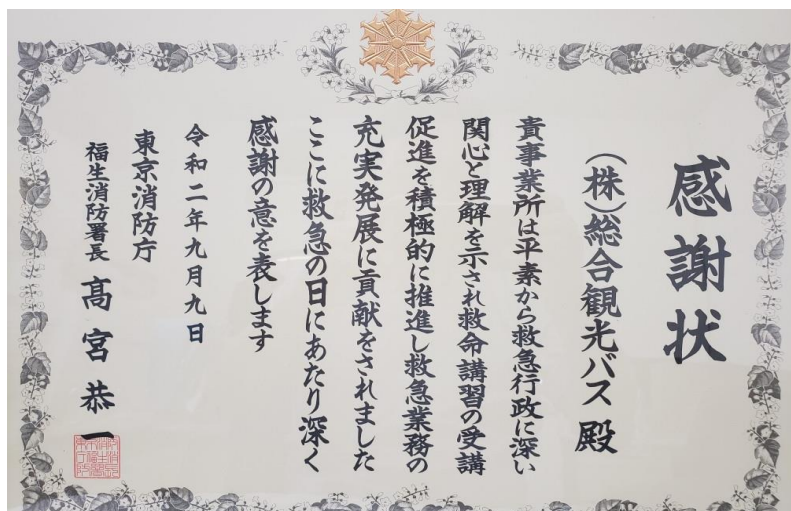 感謝状
(株)総合観光バス 殿
貴事業所は平素から救急行政に深い
関心と理解を示され救命講習の受講
促進を積極的に推進し救急業務の
充実発展に貢献をされました
ここに救急の日にあたり深く
感謝の意を表します
令和二年九月九日
東京消防庁
福生消防署長 髙宮恭一